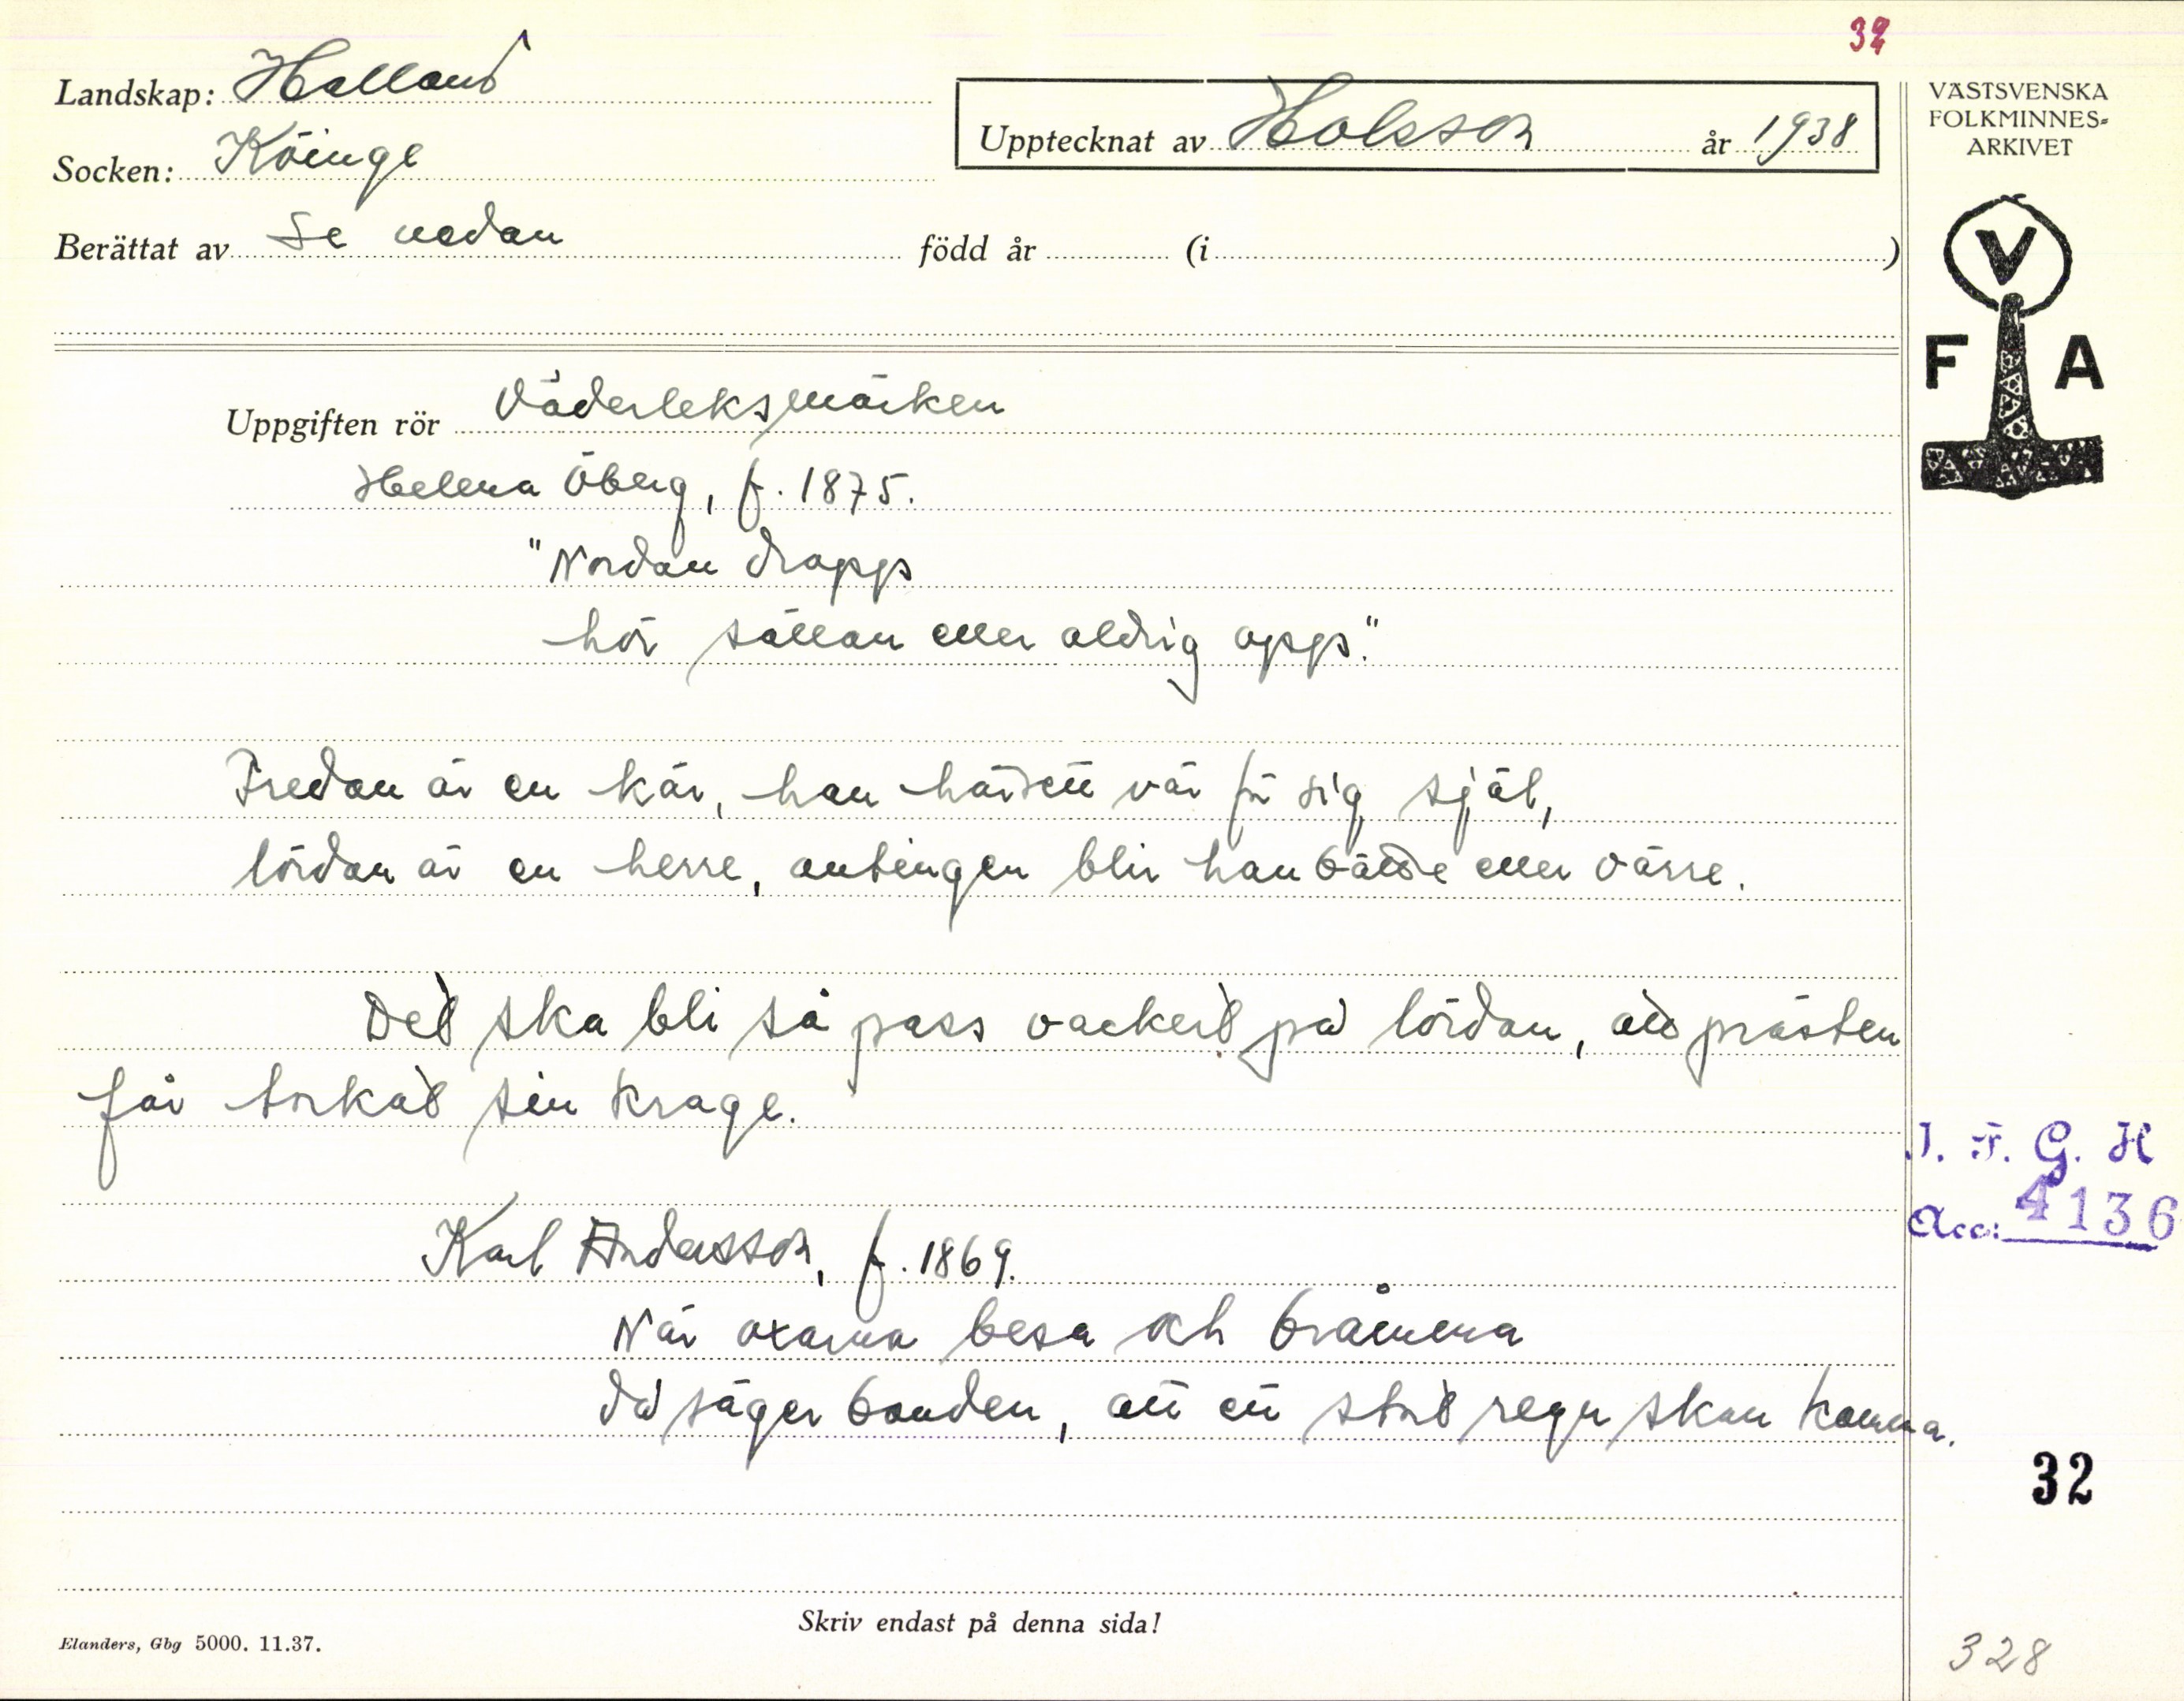 32
Landskap: Halland
Socken: Köinge
Upptecknat av Holsson år 1938
Berättat av Se nedan född år (i )
VÄSTSVENSKA
FOLKMINNES-
ARKIVET
V
F A
Uppgiften rör Väderleksmärken
Helena Öberg, f. 1875.
"Nordan drapps
hör sällan eller aldrig opps."
Fredan är en kär, han har ett vär för sig själ,
lördan är en herre, antingen blir han bätte eller värre.
Det ska bli så pass vackert på lördan, att prästen
får torkat sin krage.
Karl Andersson, f. 1869.
När oxarna besa och bråmma
då säger bonden, att ett stort regn skau komma.
I. F. G. H
Acc: 4136
32
Skriv endast på denna sida!
Elanders, Gbg 5000. 11.37.
328